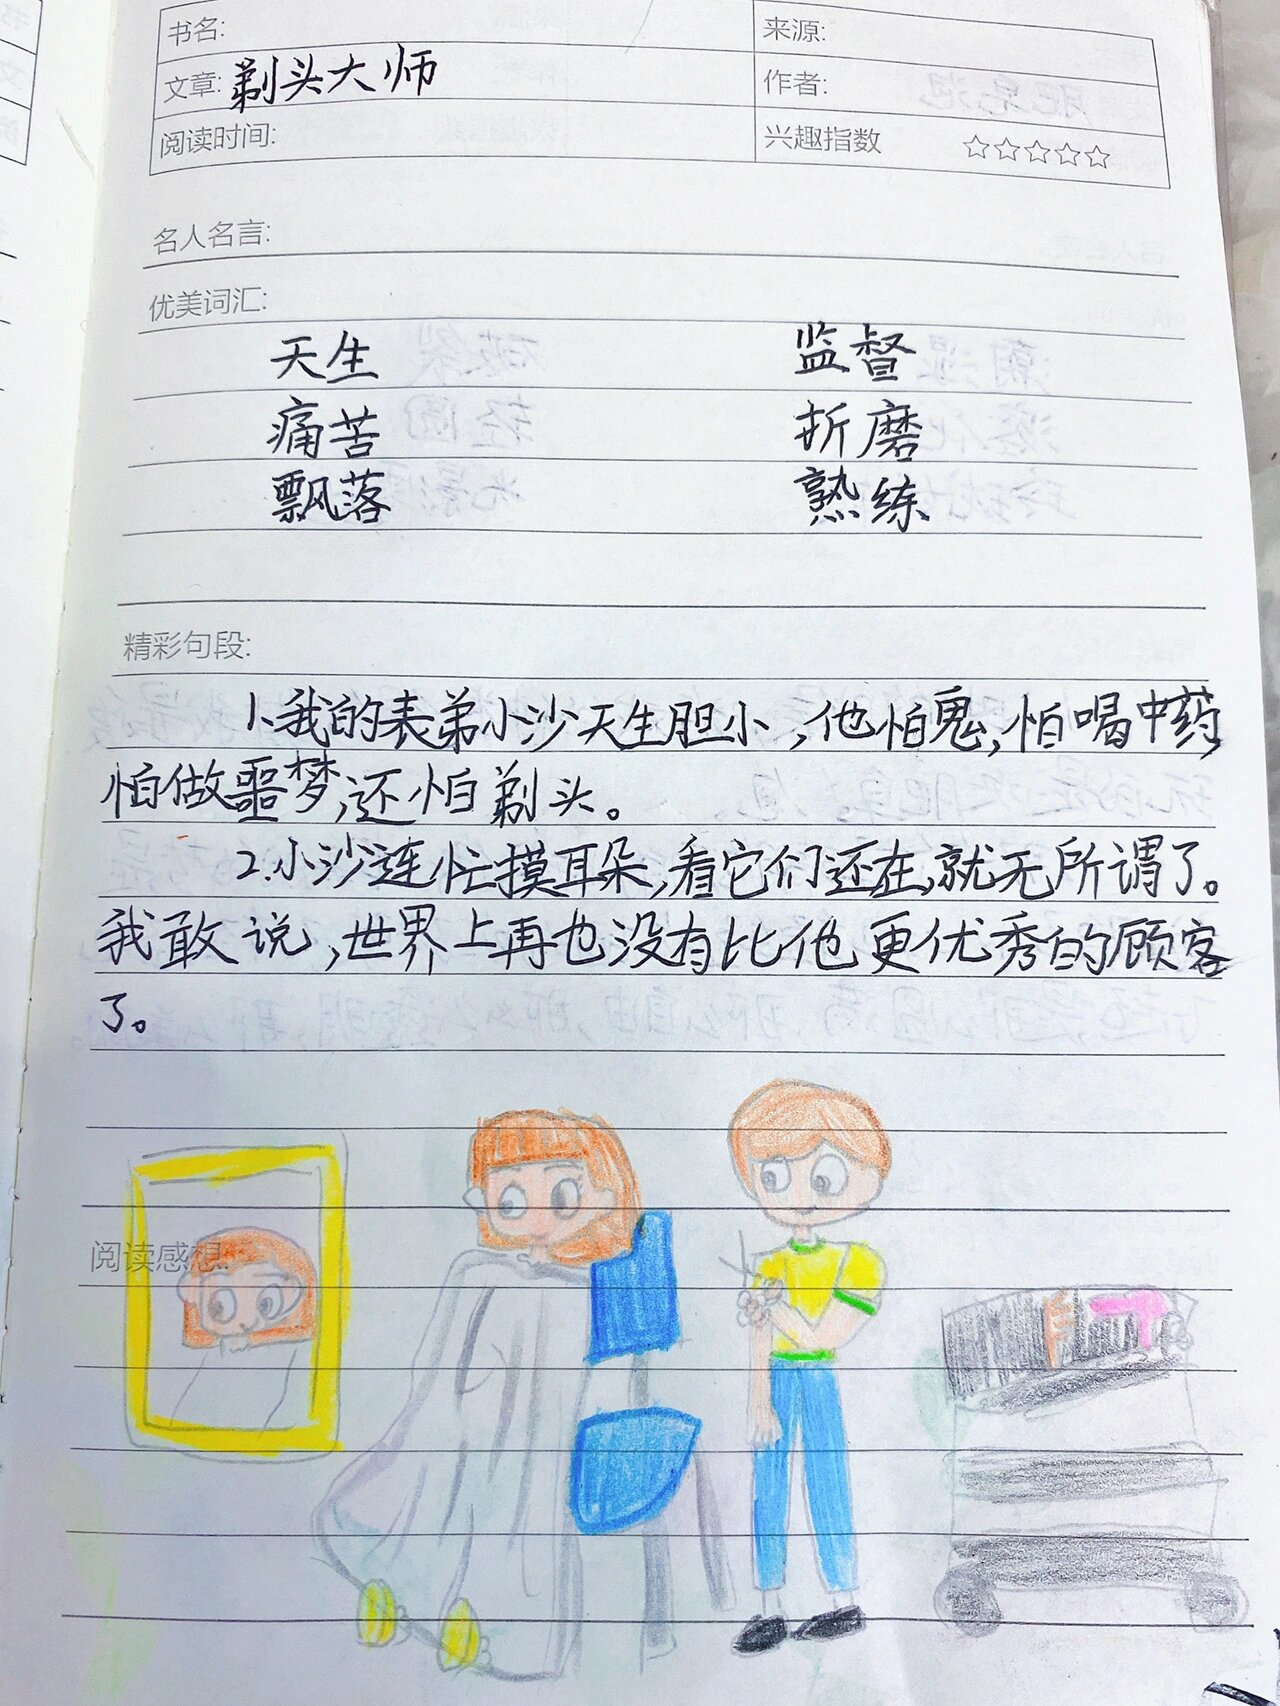 书名: 来源:
文章: 剃头大师 作者:
阅读时间: 兴趣指数 ☆☆☆☆☆
名人名言:
优美词汇:
天生 监督
痛苦 折磨
飘落 熟练
精彩句段:
1、我的表弟小沙天生胆小,他怕鬼,怕喝中药,
怕做噩梦,还怕剃头。
2.小沙连忙摸耳朵,看它们还在,就无所谓了。
我敢说,世界上再也没有比他更优秀的顾客
了。
阅读感想: